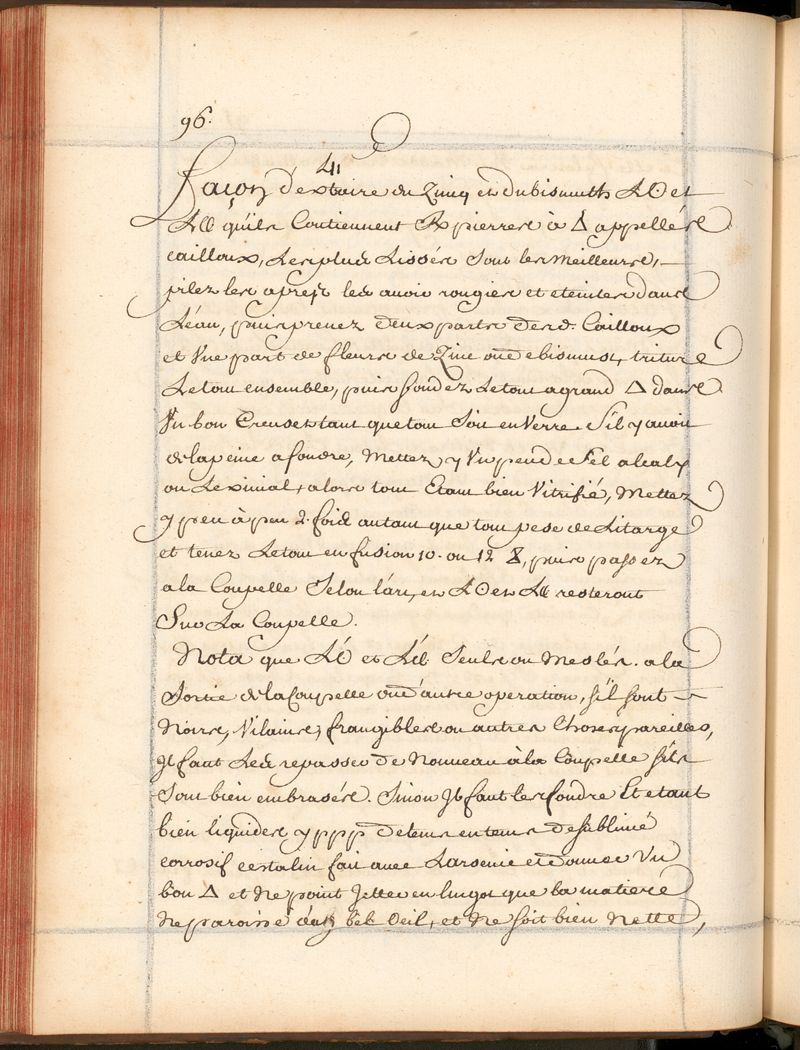 96.
41
façon d'extraire du Zinq et du bismuth L☉ et
L☾ qu'ils Contiennent ℞ pierres à △ appellés
cailloux, Les plus Lissés sont les meilleurs,
pilez les aprest les avoir rougies et eteintes dans
Léau, puis prenez deux parts desd. Cailloux
et Vne part de fleurs de Zinc ou de bismut, triture
Le tout ensemble, puis fondez Le tout a grand △ dans
Vn bon Creuset tant que tout soit en Verre. S'il y avoit
de la peine a fondre, Mettez y Vn peu de sel alcaly
ou alors tout Etant bien Vitrifié, Mettez
y peu à peu 2. fois autant que tout pese de Litarge
et tenez Le tout en fusion 10. ou 12 ⧖, puis passez
a la Coupelle Selon l'art, et L☉ et L☾ resteront
Sur La Coupelle.
Nota que L☉ et L☾ Seuls ou Meslés. a la
Sortie de la Coupelle ou d'autre operation, s'il sont
Noirs, Vilains, frangibles ou autres Choses pareilles,
Il faut Les repasser de Nouveau à la Coupelle s'ils
Sont bien embrasés. Sinon Il faut les fondre Et etant
bien liquides y ppp de tems en tems de sublimé
corrosif cristalin fait avec L'arsenic et donner Vn
bon △ et Ne point Jetter en lingot que la matiere
Ne paroisse d'un bel Oeil, et Ne soit bien Nette,